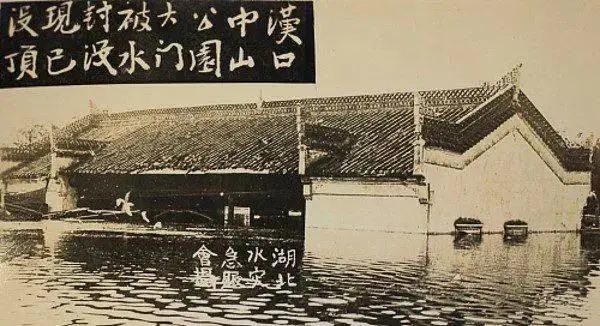 漢口
中山
公園
大门
被水
封没
現已
没頂
湖北
水灾
急賑
會攝